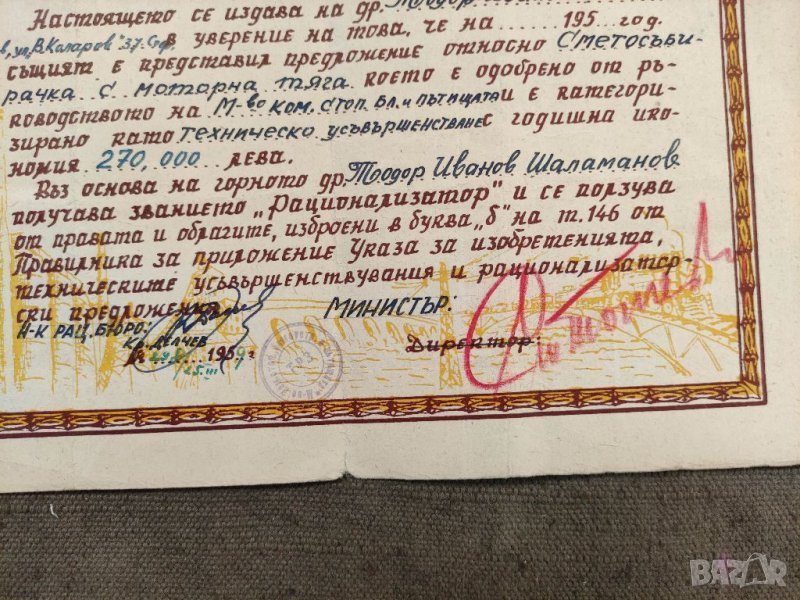 Настоящето се издава на др. Тодор
в, ул. В. Коларов" 37. Соф. в уверение на това, че на ........ 195 .... год.
същият е представил предложение относно Сметосъби-
рачка с моторна тяга което е одобрено от ръ-
ководството на М-во ком. стоп. бл. и пътищата и е категори-
зирано като техническо усъвършенстване с годишна ико-
номия 270,000 лева.
Въз основа на горното др. Тодор Иванов Шаламанов
получава званието „Рационализатор" и се ползува
от правата и облагите, изброени в буква „б" на т. 146 от
Правилника за приложение Указа за изобретенията,
техническите усъвършенствувания и рационализатор-
ски предложения
Н-К РАЦ. БЮРО:
Кр. Делчев
МИНИСТЪР:
Директор:
195 9 г
25.III
BAZAR
bazar.bg